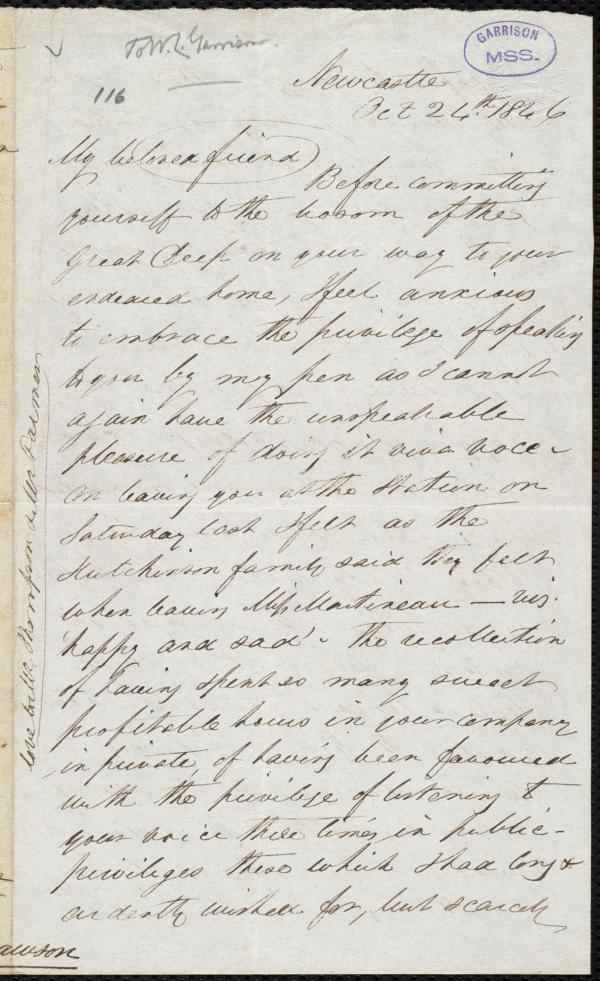 To W. L. Garrison.
GARRISON
MSS.
116
Newcastle
Oct 24th. 1846
My beloved friend
Before committing
yourself to the bosom of the
Great Deep on your way to your
endeared home, I feel anxious
to embrace the privilege of speaking
to you by my pen as I cannot
again have the unspeakable
pleasure of doing it viva voce -
On leaving you at the Station on
Saturday last I felt as the
Hutchinson family said they felt
when leaving Miss Martineau — viz.
'happy and sad' - the recollection
of having spent so many sweet
profitable hours in your company
in private, of having been favoured
with the privilege of listening to
your voice three times in public -
privileges these which I had long &
ardently wished for, but scarcely
love to Mr Thompson & Mr
awson